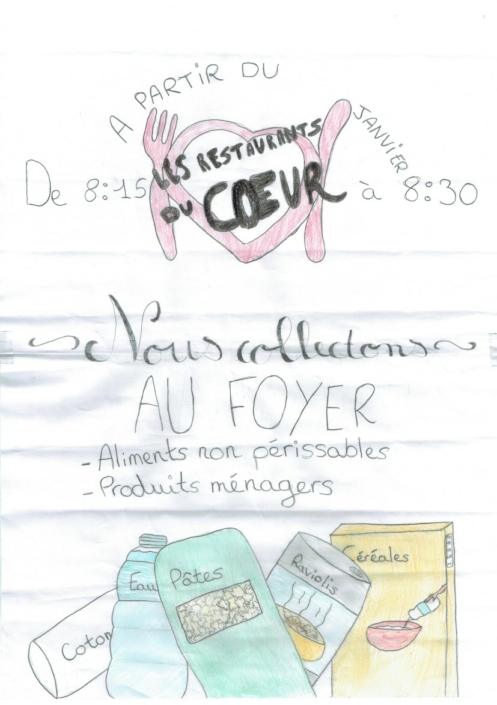 A PARTIR DU
JANVIER
LES RESTAURANTS
DU CŒUR
De 8:15 à 8:30
Nous collectons
AU FOYER
- Aliments non périssables
- Produits ménagers
Coton
Eau
Pâtes
Raviolis
Céréales